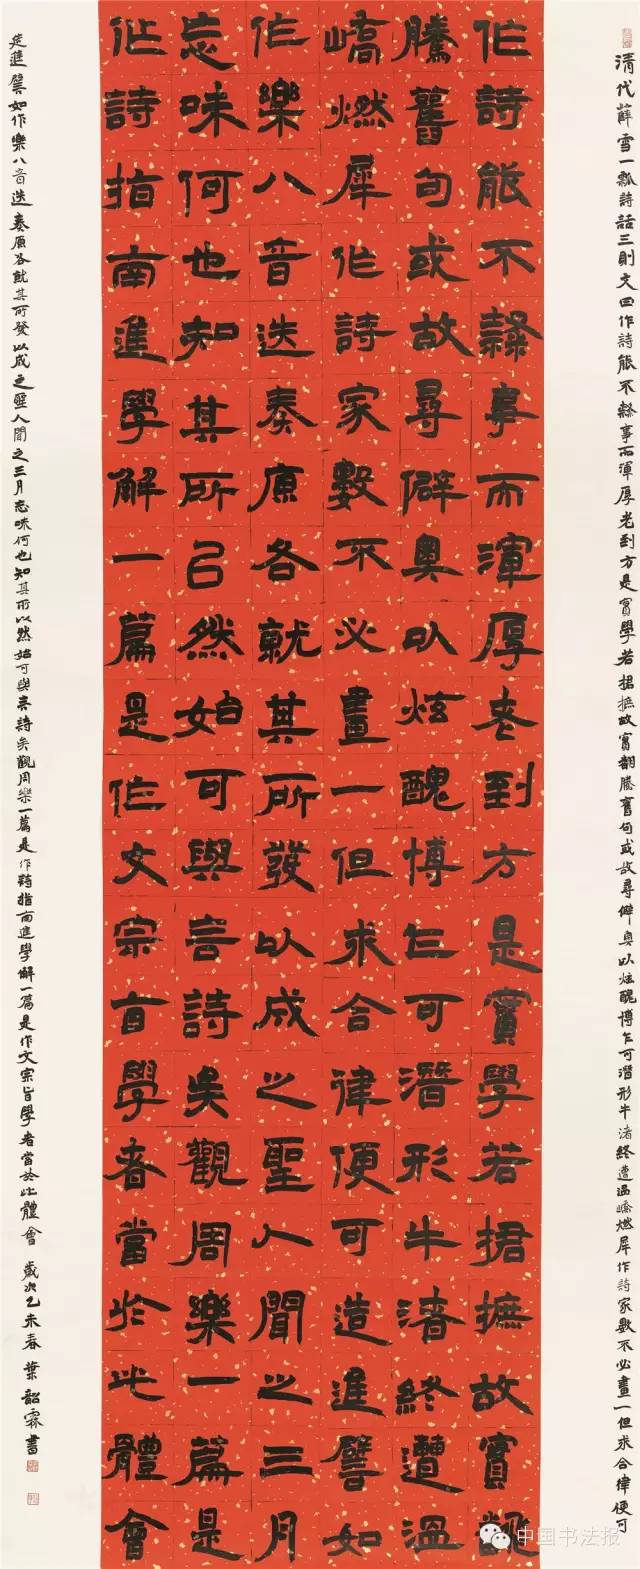 清代薛雪一瓢詩話三則文曰作詩能不隸事而渾厚老到方是實學若捃摭故實翻騰舊句或故尋僻奥以炫醜博乍可潛形牛渚終遭温嶠燃犀作詩家數不必畫一但求合律便可
作詩能不隸事而渾厚老到方是實學若捃摭故實翻
騰舊句或故尋僻奥以炫醜博乍可潛形牛渚終遭温
嶠燃犀作詩家數不必畫一但求合律便可造進譬如
作樂八音迭奏原各就其所發以成之聖人聞之三月
忘味何也知其所㠯然始可與言詩矣觀周樂一篇是
作詩指南進學解一篇是作文宗旨學者當於此體會
造進譬如作樂八音迭奏原各就其所發以成之聖人聞之三月忘味何也知其所以然始可與言詩矣觀周樂一篇是作詩指南進學解一篇是作文宗旨學者當於此體會 歲次乙未春葉韶霖書
中国书法报